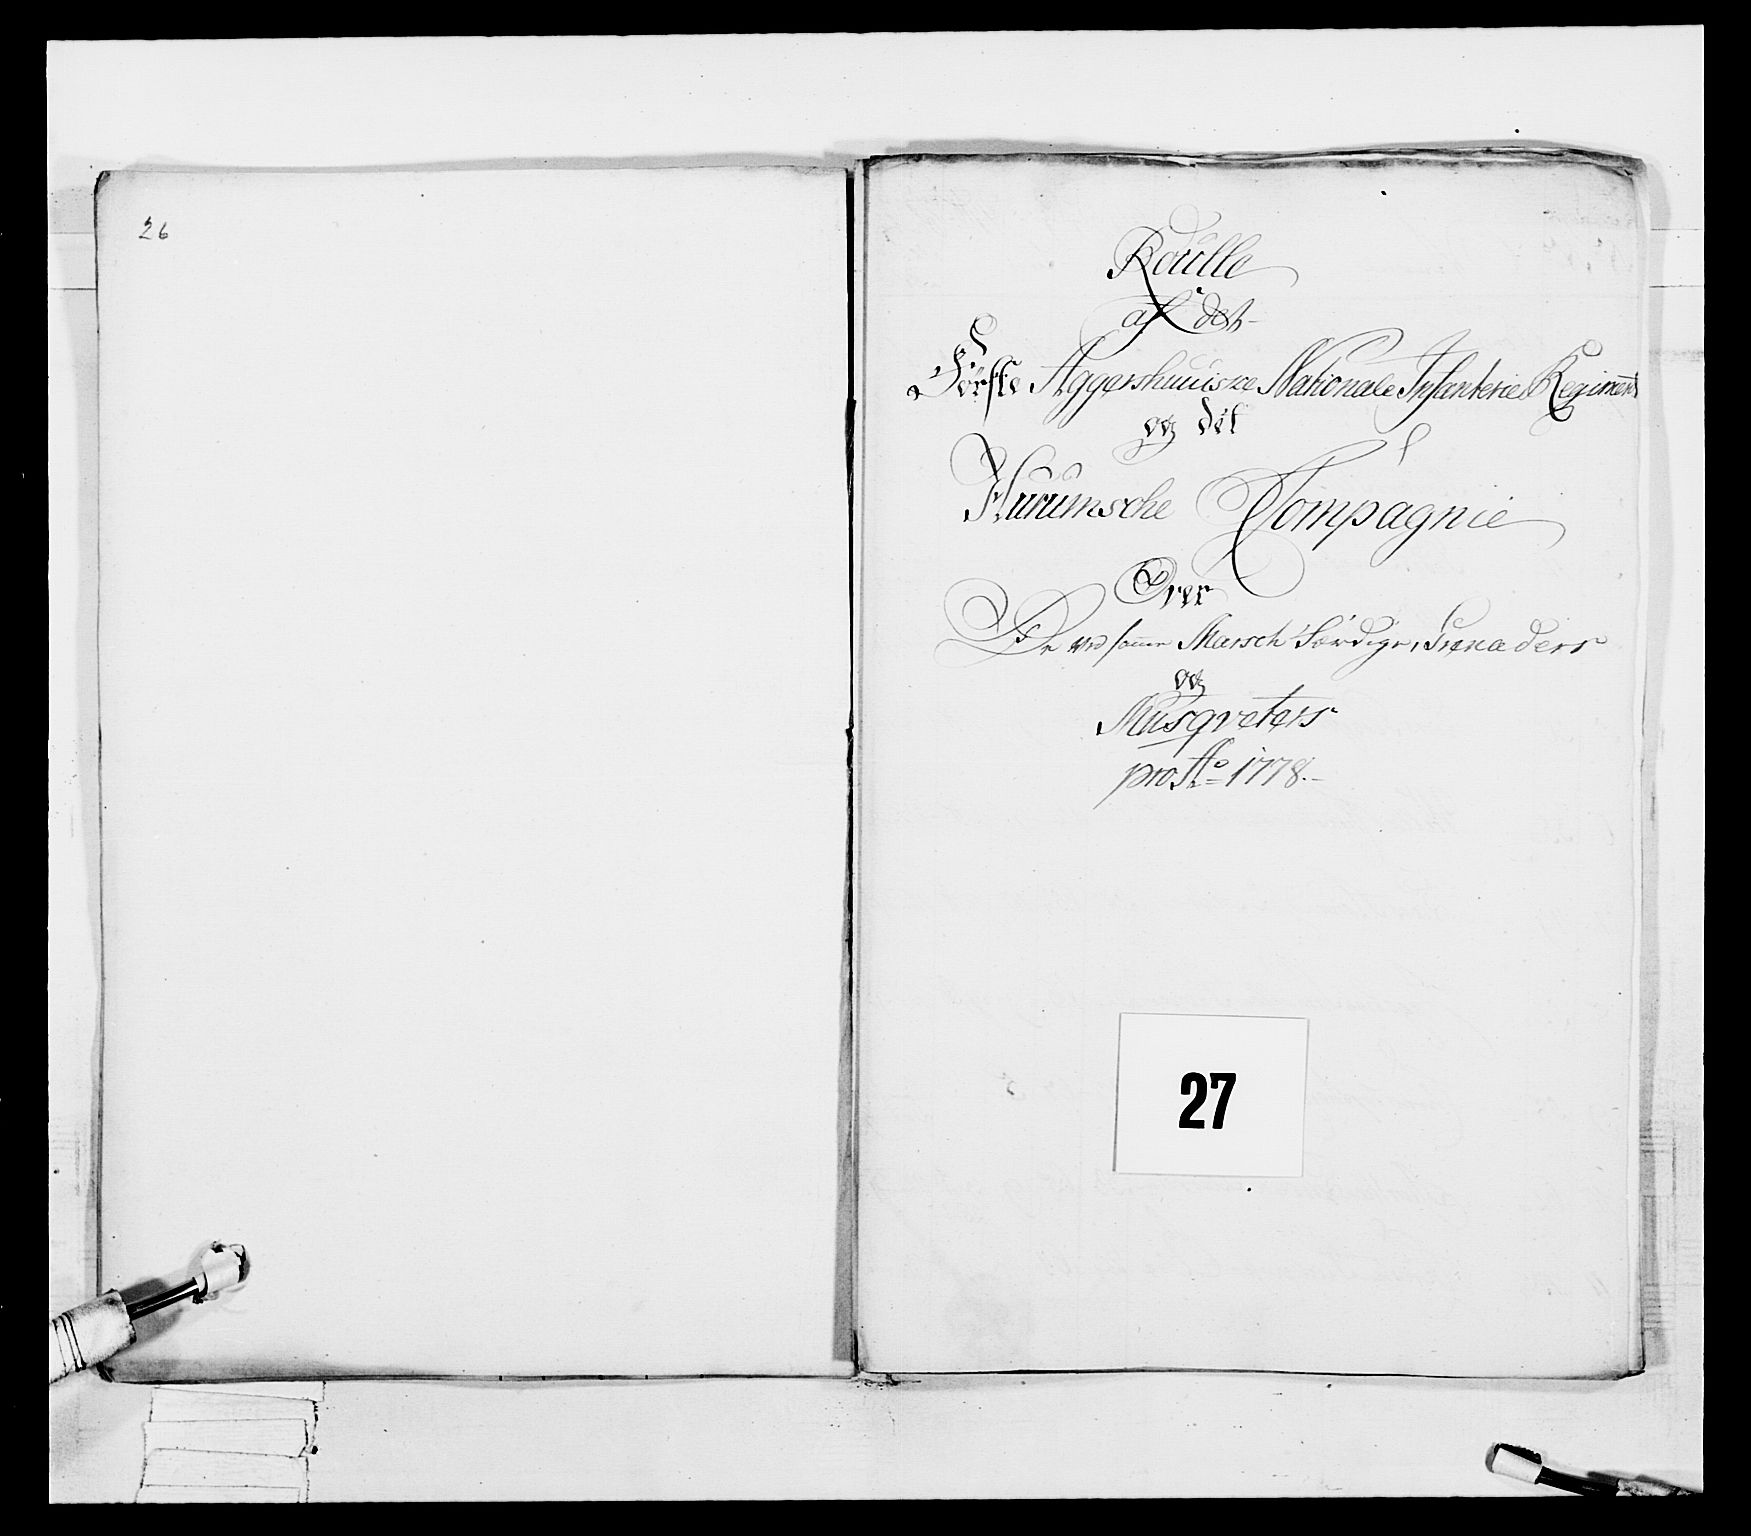 26
Roulle
af det
Förste Aggershuuiske Nationale Infanterie Regiment
og det
Huurumsche Compagnie
Over
De ved samme Marsch Færdige, Grenaders
og
Musqveters
pro Ao 1778.
27